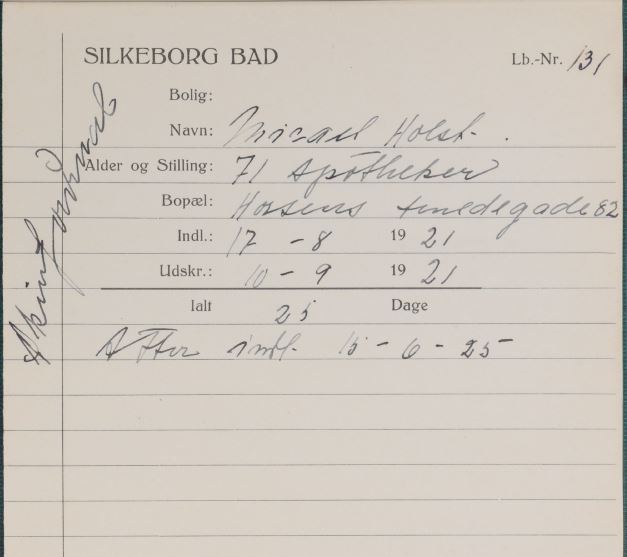 SILKEBORG BAD
Lb.-Nr. 131
Bolig:
Navn: Micael Holst.
Alder og Stilling: 71 Apotheker
Bopæl: Horsens Smedegade 82
Indl.: 17 - 8 1921
Udskr.: 10 - 9 1921
Ialt 25 Dage
Atter indl. 15 - 6 - 25